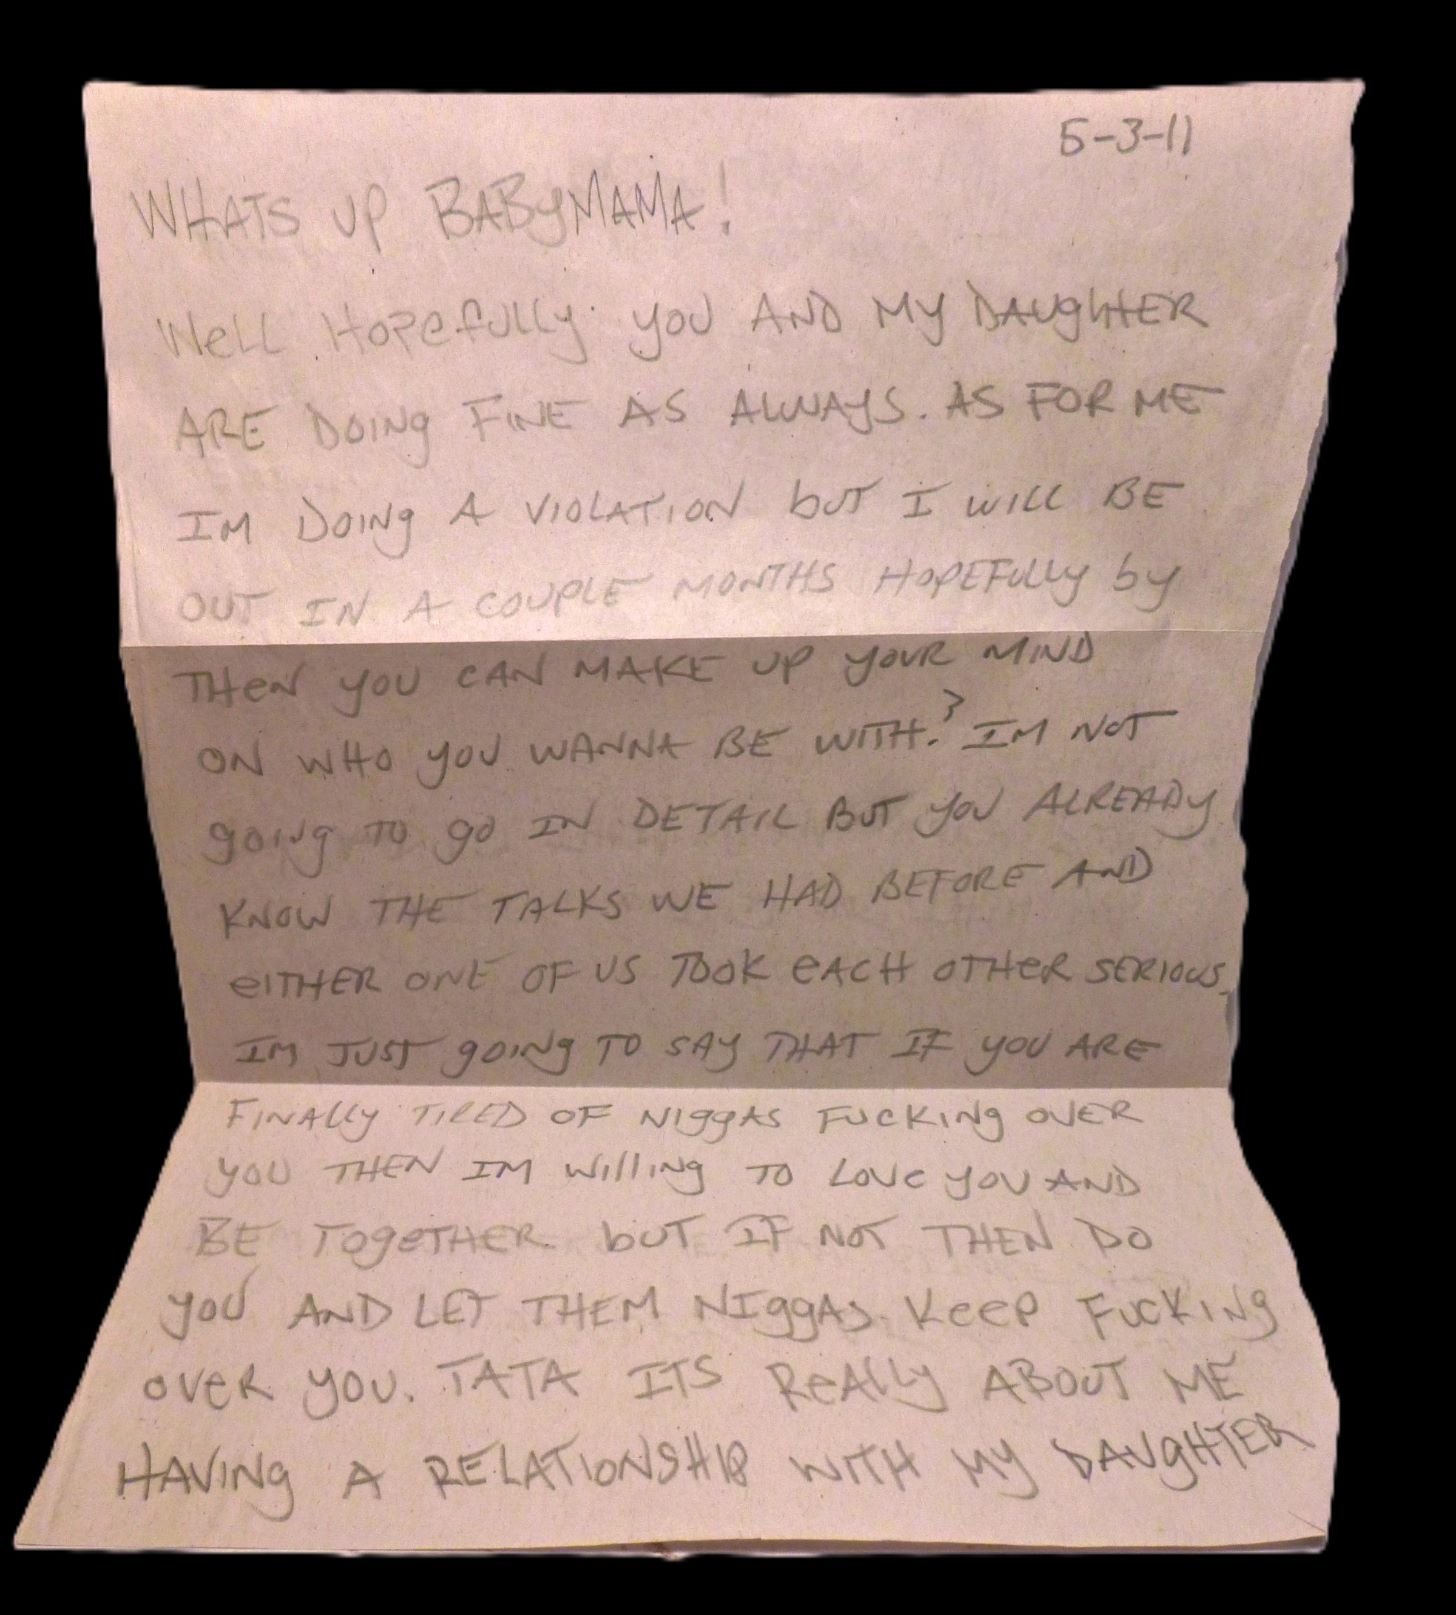 5-3-11
WHATS UP BABYMAMA!
Well Hopefully you AND My DAUgHTER
ARE DOINg FINE AS ALWAyS. AS FOR ME
IM DOINg A VIOLATION bUT I WILL BE
OUT IN A COUPLE MONTHS HOPEFUlly by
THeN yOU CAN MAKE UP yOUR MIND
ON WHO yOU WANNA BE WITH.? IM NOT
gOINg TO gO IN DETAIL BUT yOU ALREADy
KNOW THE TALKS WE HAD BEFORE AND
eITHER ONE OF US TOOK eACH OTHeR SERIOUS.
IM JUST gOINg TO SAy THAT IF yOU ARE
FINALLy TIRED OF NIggAS FUCKINg OVER
yOU THEN IM WIllINg TO LOVe yOU AND
BE TOgeTHER bUT IF NOT THEN DO
yOU AND LET THEM NIggAS KeeP FUCKINg
OVeR yOU. TATA ITS ReALLy ABOUT ME
HAVINg A RELATIONSHIP WITH My DAUgHTER